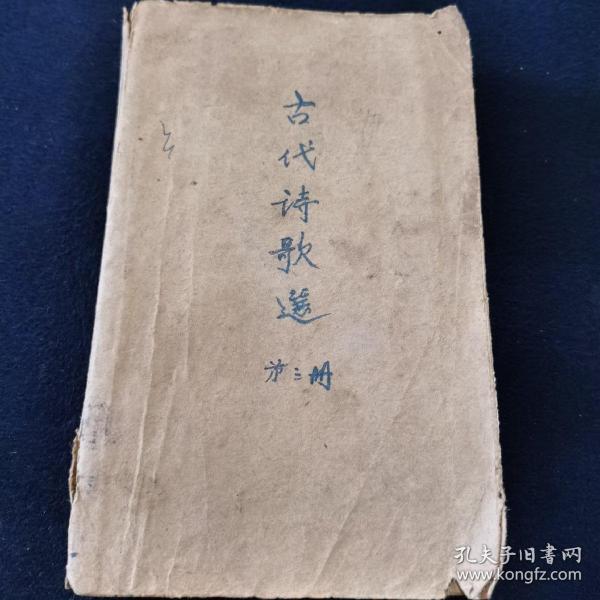 古代诗歌選
第三册
孔夫子旧书网
www.kongfz.com